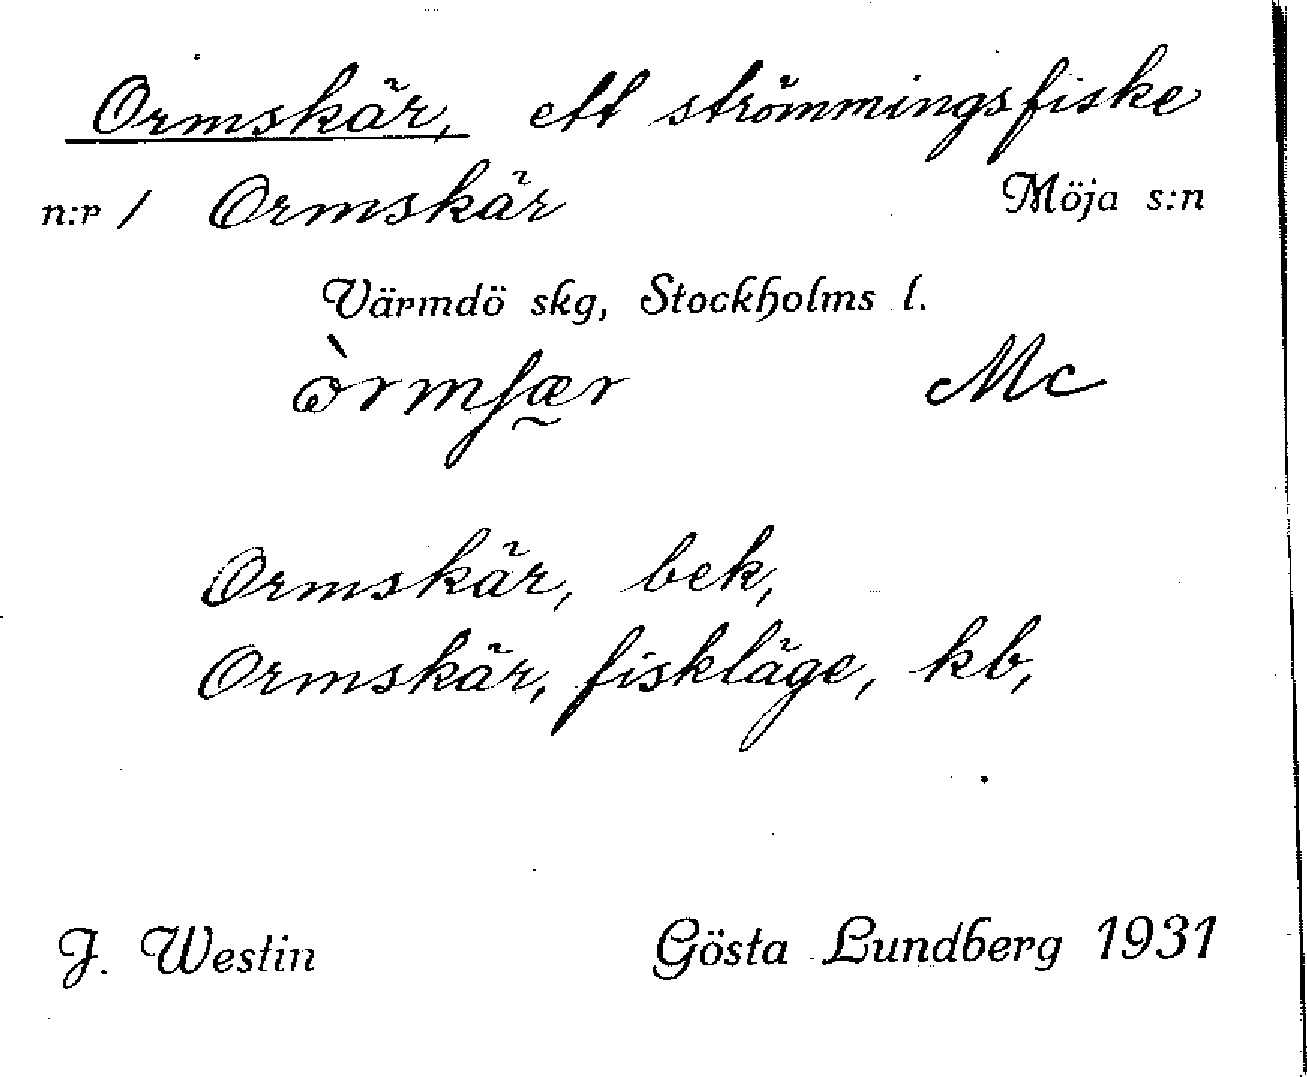 Ormskär, ett strömmingsfiske
n:r 1 Ormskär Möja s:n
Värmdö skg, Stockholms l.
Mc
Ormskär, bek,
Ormskär, fiskläge, kb,
J. Westin Gösta Lundberg 1931